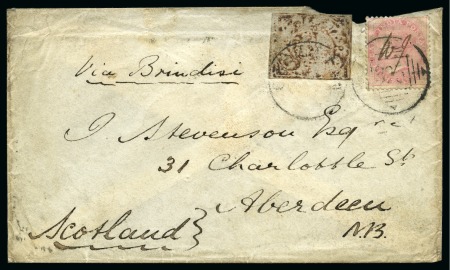 Via Brindisi
J. Stevenson Esqre
31 Charlotte St
Aberdeen
N.B.
Scotland